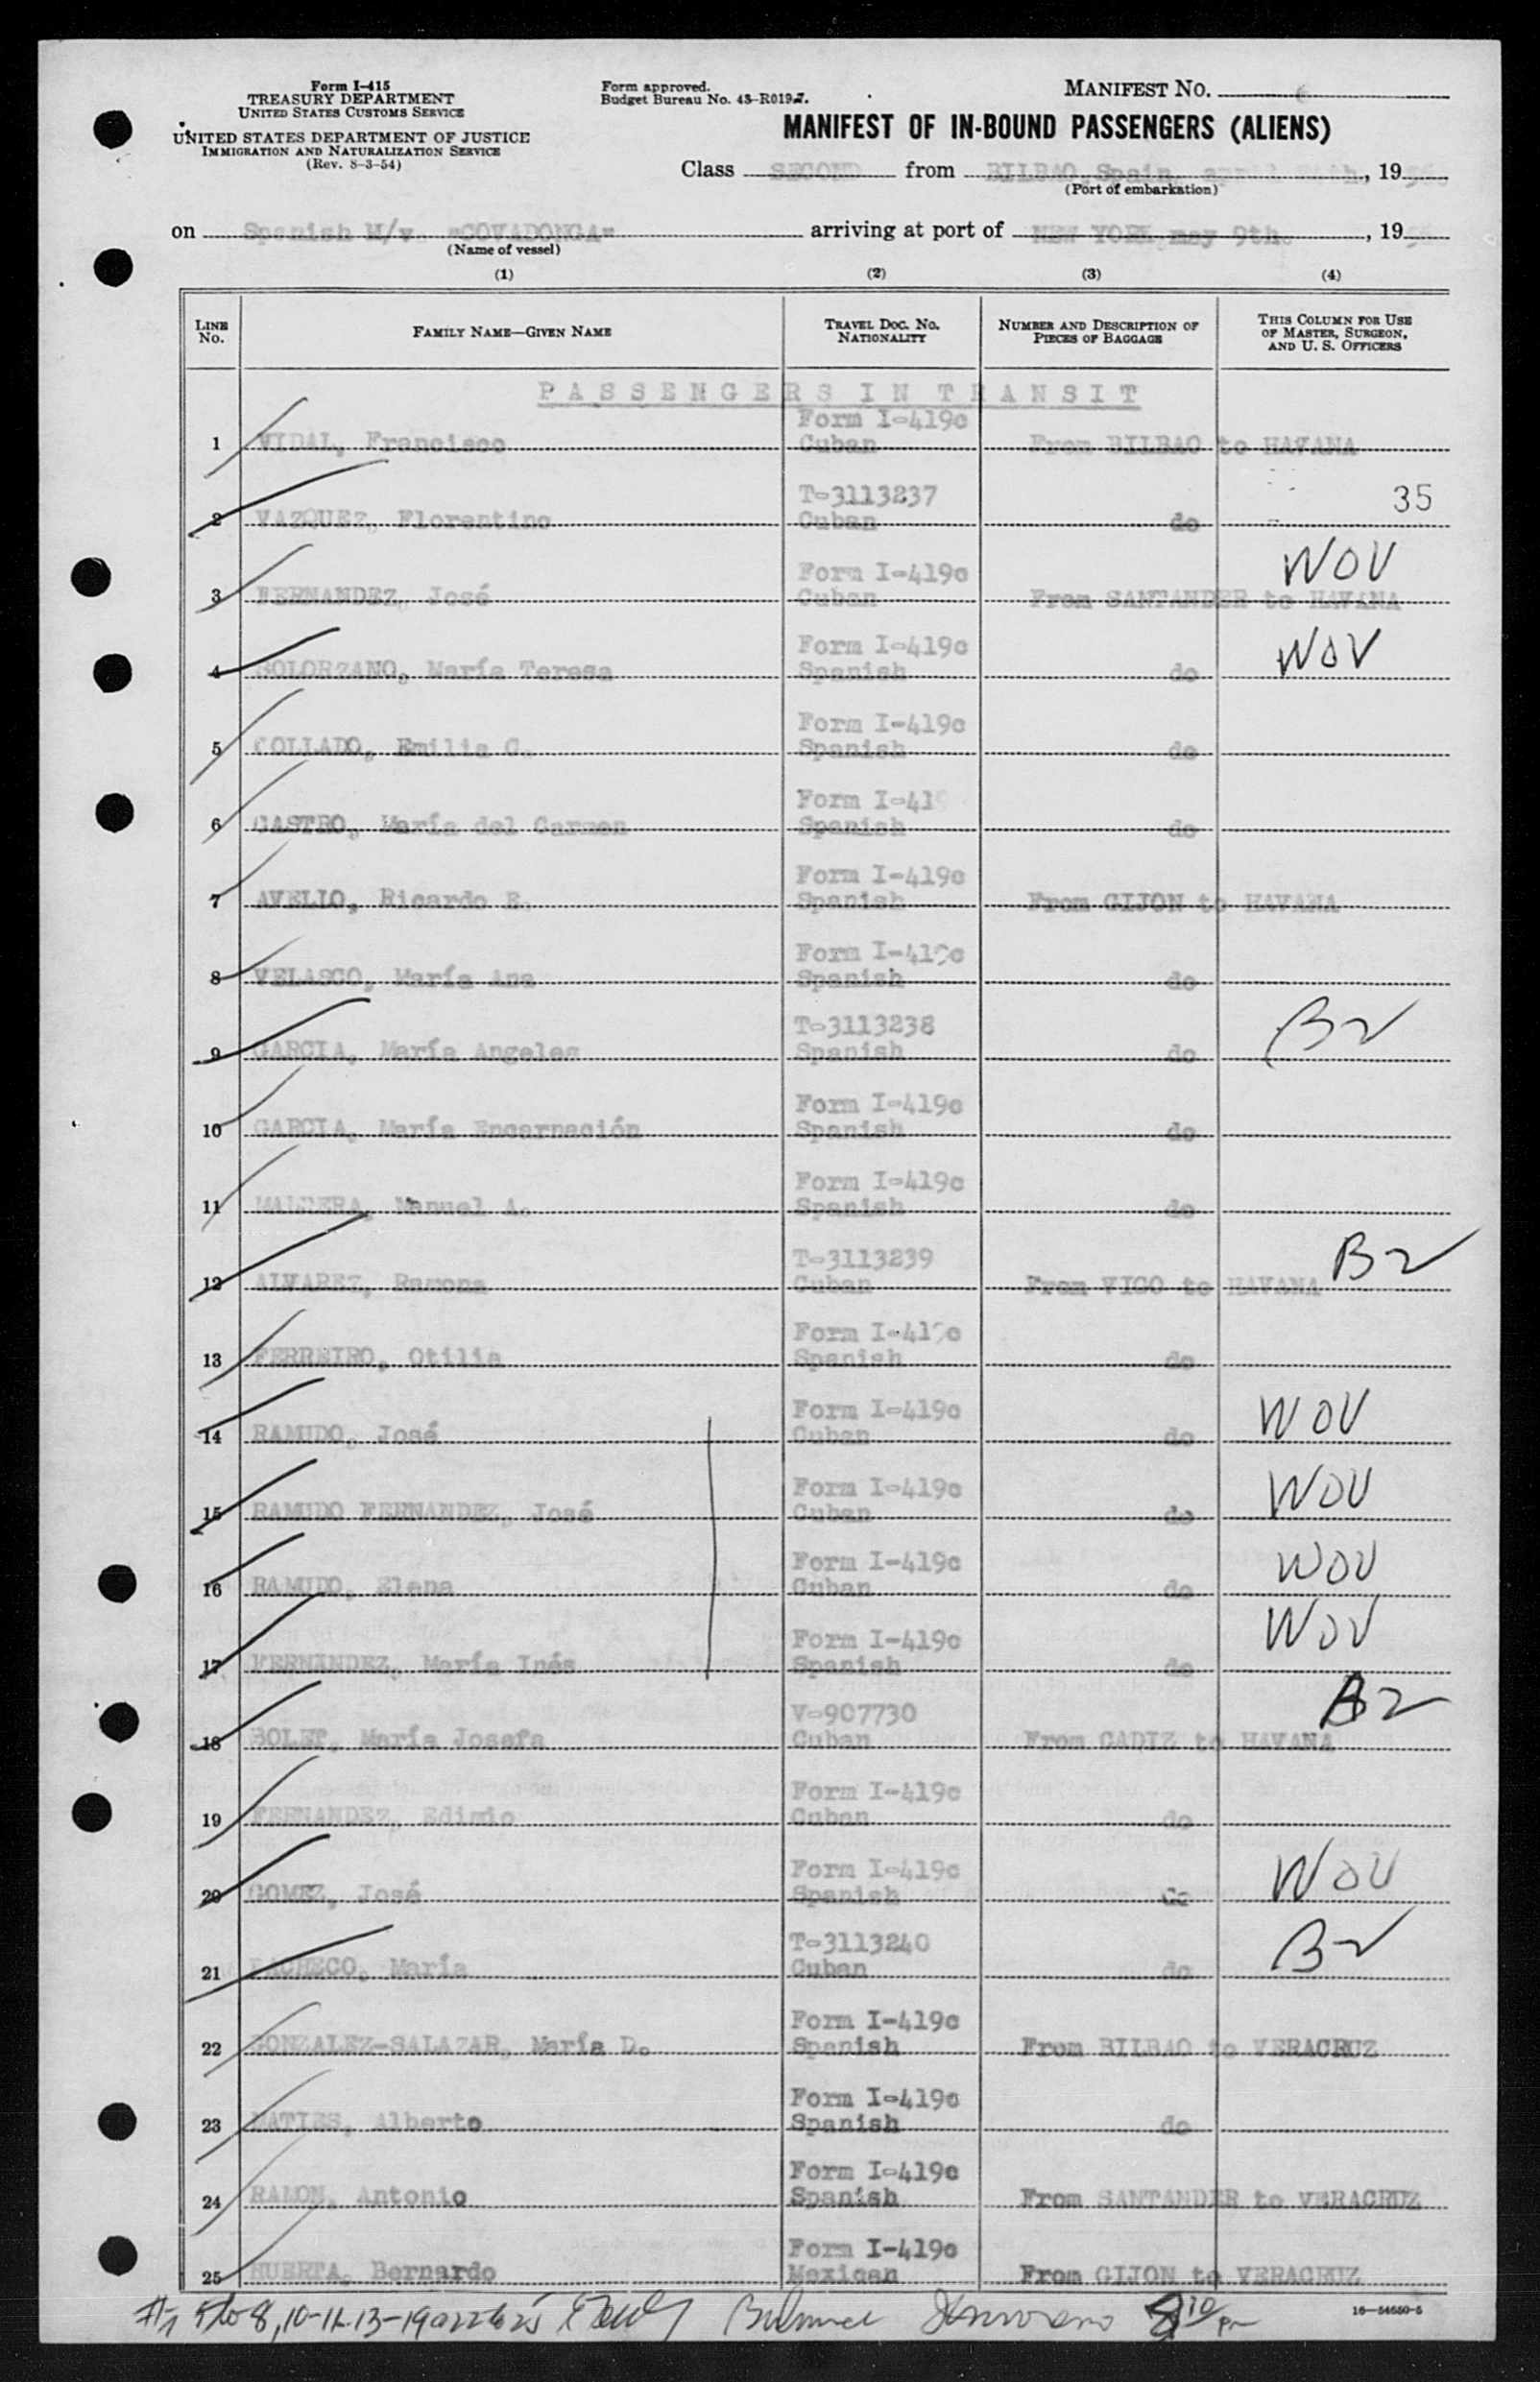 Form I-415
TREASURY DEPARTMENT
UNITED STATES CUSTOMS SERVICE
UNITED STATES DEPARTMENT OF JUSTICE
IMMIGRATION AND NATURALIZATION SERVICE
(Rev. 8-3-54)
Form approved.
Budget Bureau No. 43-R019.7.
MANIFEST NO.
MANIFEST OF IN-BOUND PASSENGERS (ALIENS)
Class SECOND from BILBAO, Spain, april , 19
(Port of embarkation)
on Spanish M/v. "COVADONGA" arriving at port of NEW YORK may 9th. , 19
(Name of vessel)
(1) (2) (3) (4)
LINE NO. FAMILY NAME—GIVEN NAME TRAVEL DOC. NO. NATIONALITY NUMBER AND DESCRIPTION OF PIECES OF BAGGAGE THIS COLUMN FOR USE OF MASTER, SURGEON, AND U. S. OFFICERS
PASSENGERS IN TRANSIT
Form I-419c
1 VIDAL, Francisco Cuban From BILBAO to HAVANA
T-3113237 35
2 VAZQUEZ, Florentino Cuban do
Form I-419c WOV
3 FERNANDEZ, José Cuban From SANTANDER to HAVANA
Form I-419c WOV
4 SOLORZANO, María Teresa Spanish do
Form I-419c
5 COLLADO, Emilia C. Spanish do
Form I-419
6 CASTRO, María del Carmen Spanish do
Form I-419c
7 AVELLO, Ricardo E. Spanish From GIJON to HAVANA
Form I-419c
8 VELASCO, María Ana Spanish do
T-3113238 B2
9 GARCIA, María Angeles Spanish do
Form I-419c
10 GARCIA, María Encarnación Spanish do
Form I-419c
11 Manuel A. Spanish do
T-3113239 B2
12 ALVAREZ, Ramona Cuban From VIGO to HAVANA
Form I-419c
13 FERREIRO, Otilia Spanish do
Form I-419c WOV
14 RAMUDO, José Cuban do
Form I-419c WOV
15 RAMUDO FERNANDEZ, José Cuban do
Form I-419c WOV
16 RAMUDO, Elena Cuban do
Form I-419c WOV
17 FERNANDEZ, María Inés Spanish do
V-907730 B2
18 BOLET, María Josefa Cuban From CADIZ to HAVANA
Form I-419c
19 FERNANDEZ, Edimio Cuban do
Form I-419c WOV
20 GOMEZ, José Spanish do
T-3113240 B2
21 PACHECO, María Cuban do
Form I-419c
22 GONZALEZ-SALAZAR, María D. Spanish From BILBAO to VERACRUZ
Form I-419c
23 MATIES, Alberto Spanish do
Form I-419c
24 RAMON, Antonio Spanish From SANTANDER to VERACRUZ
Form I-419c
25 HUERTA, Bernardo Mexican From GIJON to VERACRUZ
16—54650-5